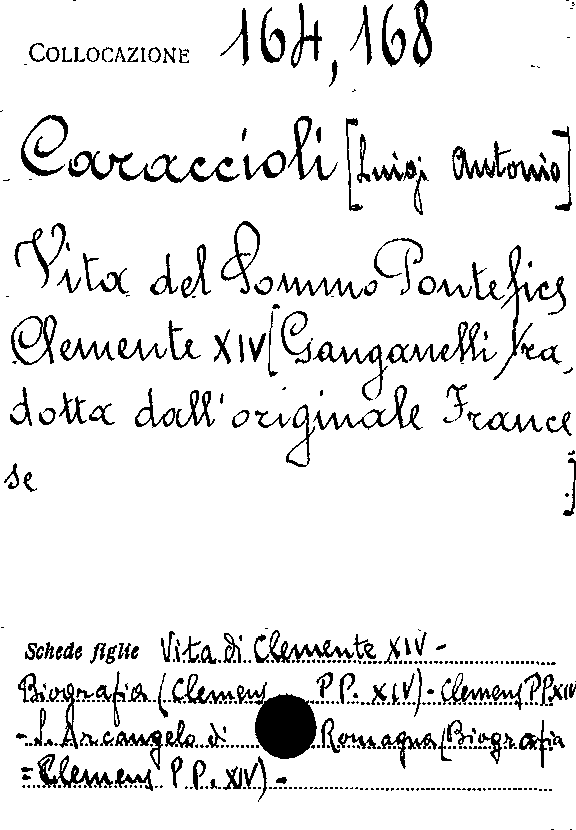 COLLOCAZIONE 164,168
Caraccioli [Luigi Antonio]
Vita del Sommo Pontefice
Clemente XIV [Ganganelli tra,
dotta dall'originale France
se ]
Schede figlie Vita di Clemente XIV -
Biografia (Clemens PP. XIV) - Clemens PP XIV
- S. Arcangelo di Romagna (Biografia
= Clemens PP. XIV) -